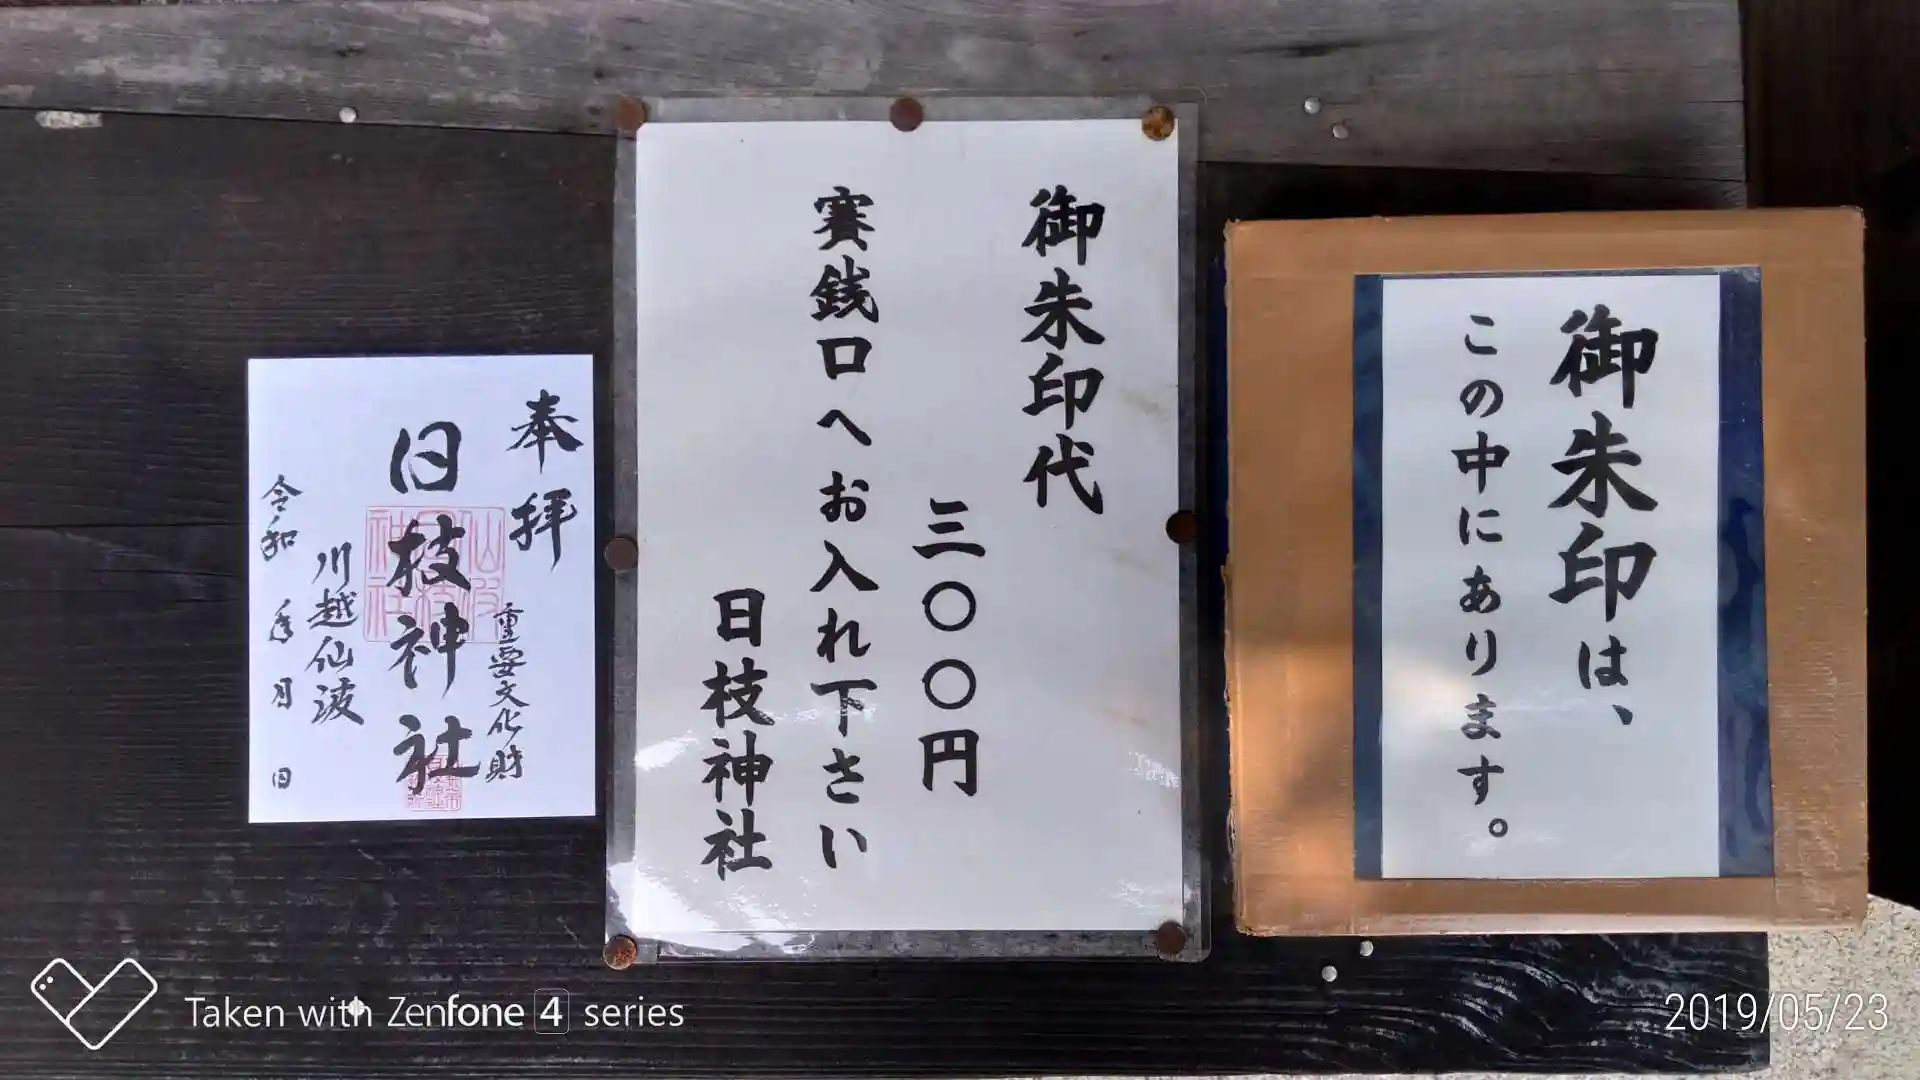 御朱印は、
この中にあります。
御朱印代
三〇〇円
賽銭口へお入れ下さい
日枝神社
奉拝
重要文化財
日枝神社
川越仙波
令和 年 月 日
Taken with Zenfone 4 series
2019/05/23